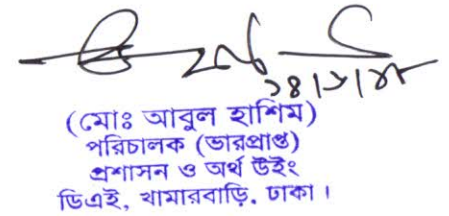 (মোঃ আবুল হাশিম)
পরিচালক (ভারপ্রাপ্ত)
প্রশাসন ও অর্থ উইং
ডিএই, খামারবাড়ি, ঢাকা।